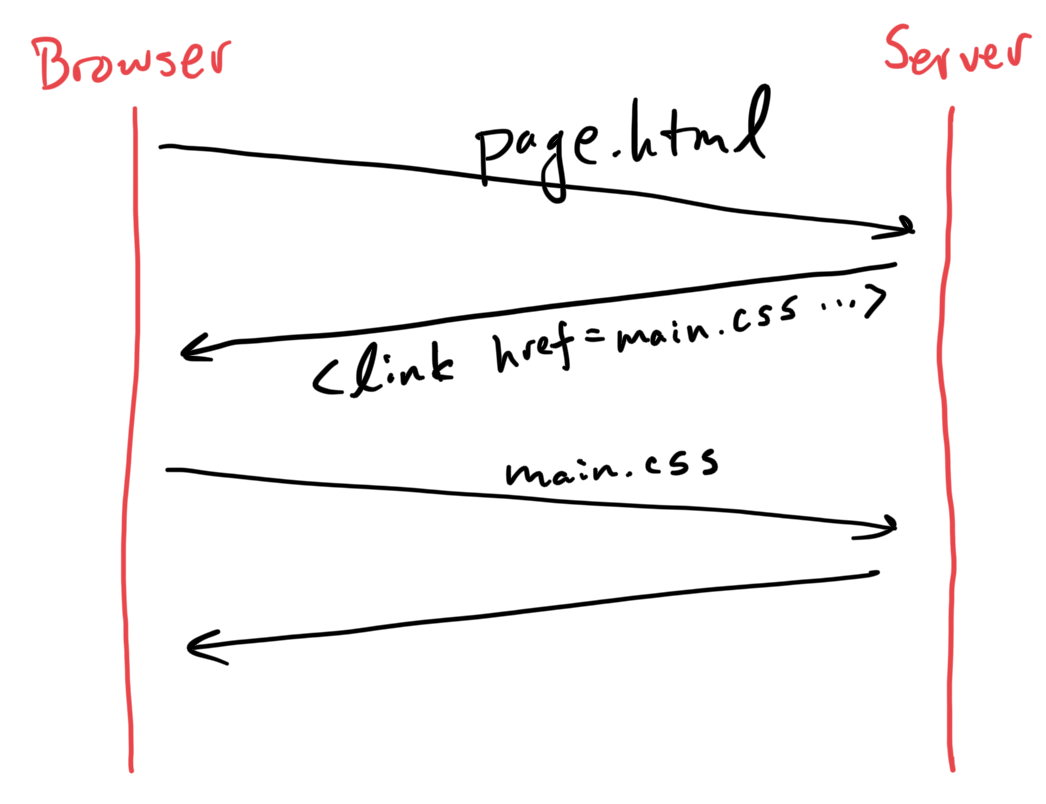 Browser
Server
page.html
<link href=main.css ...>
main.css